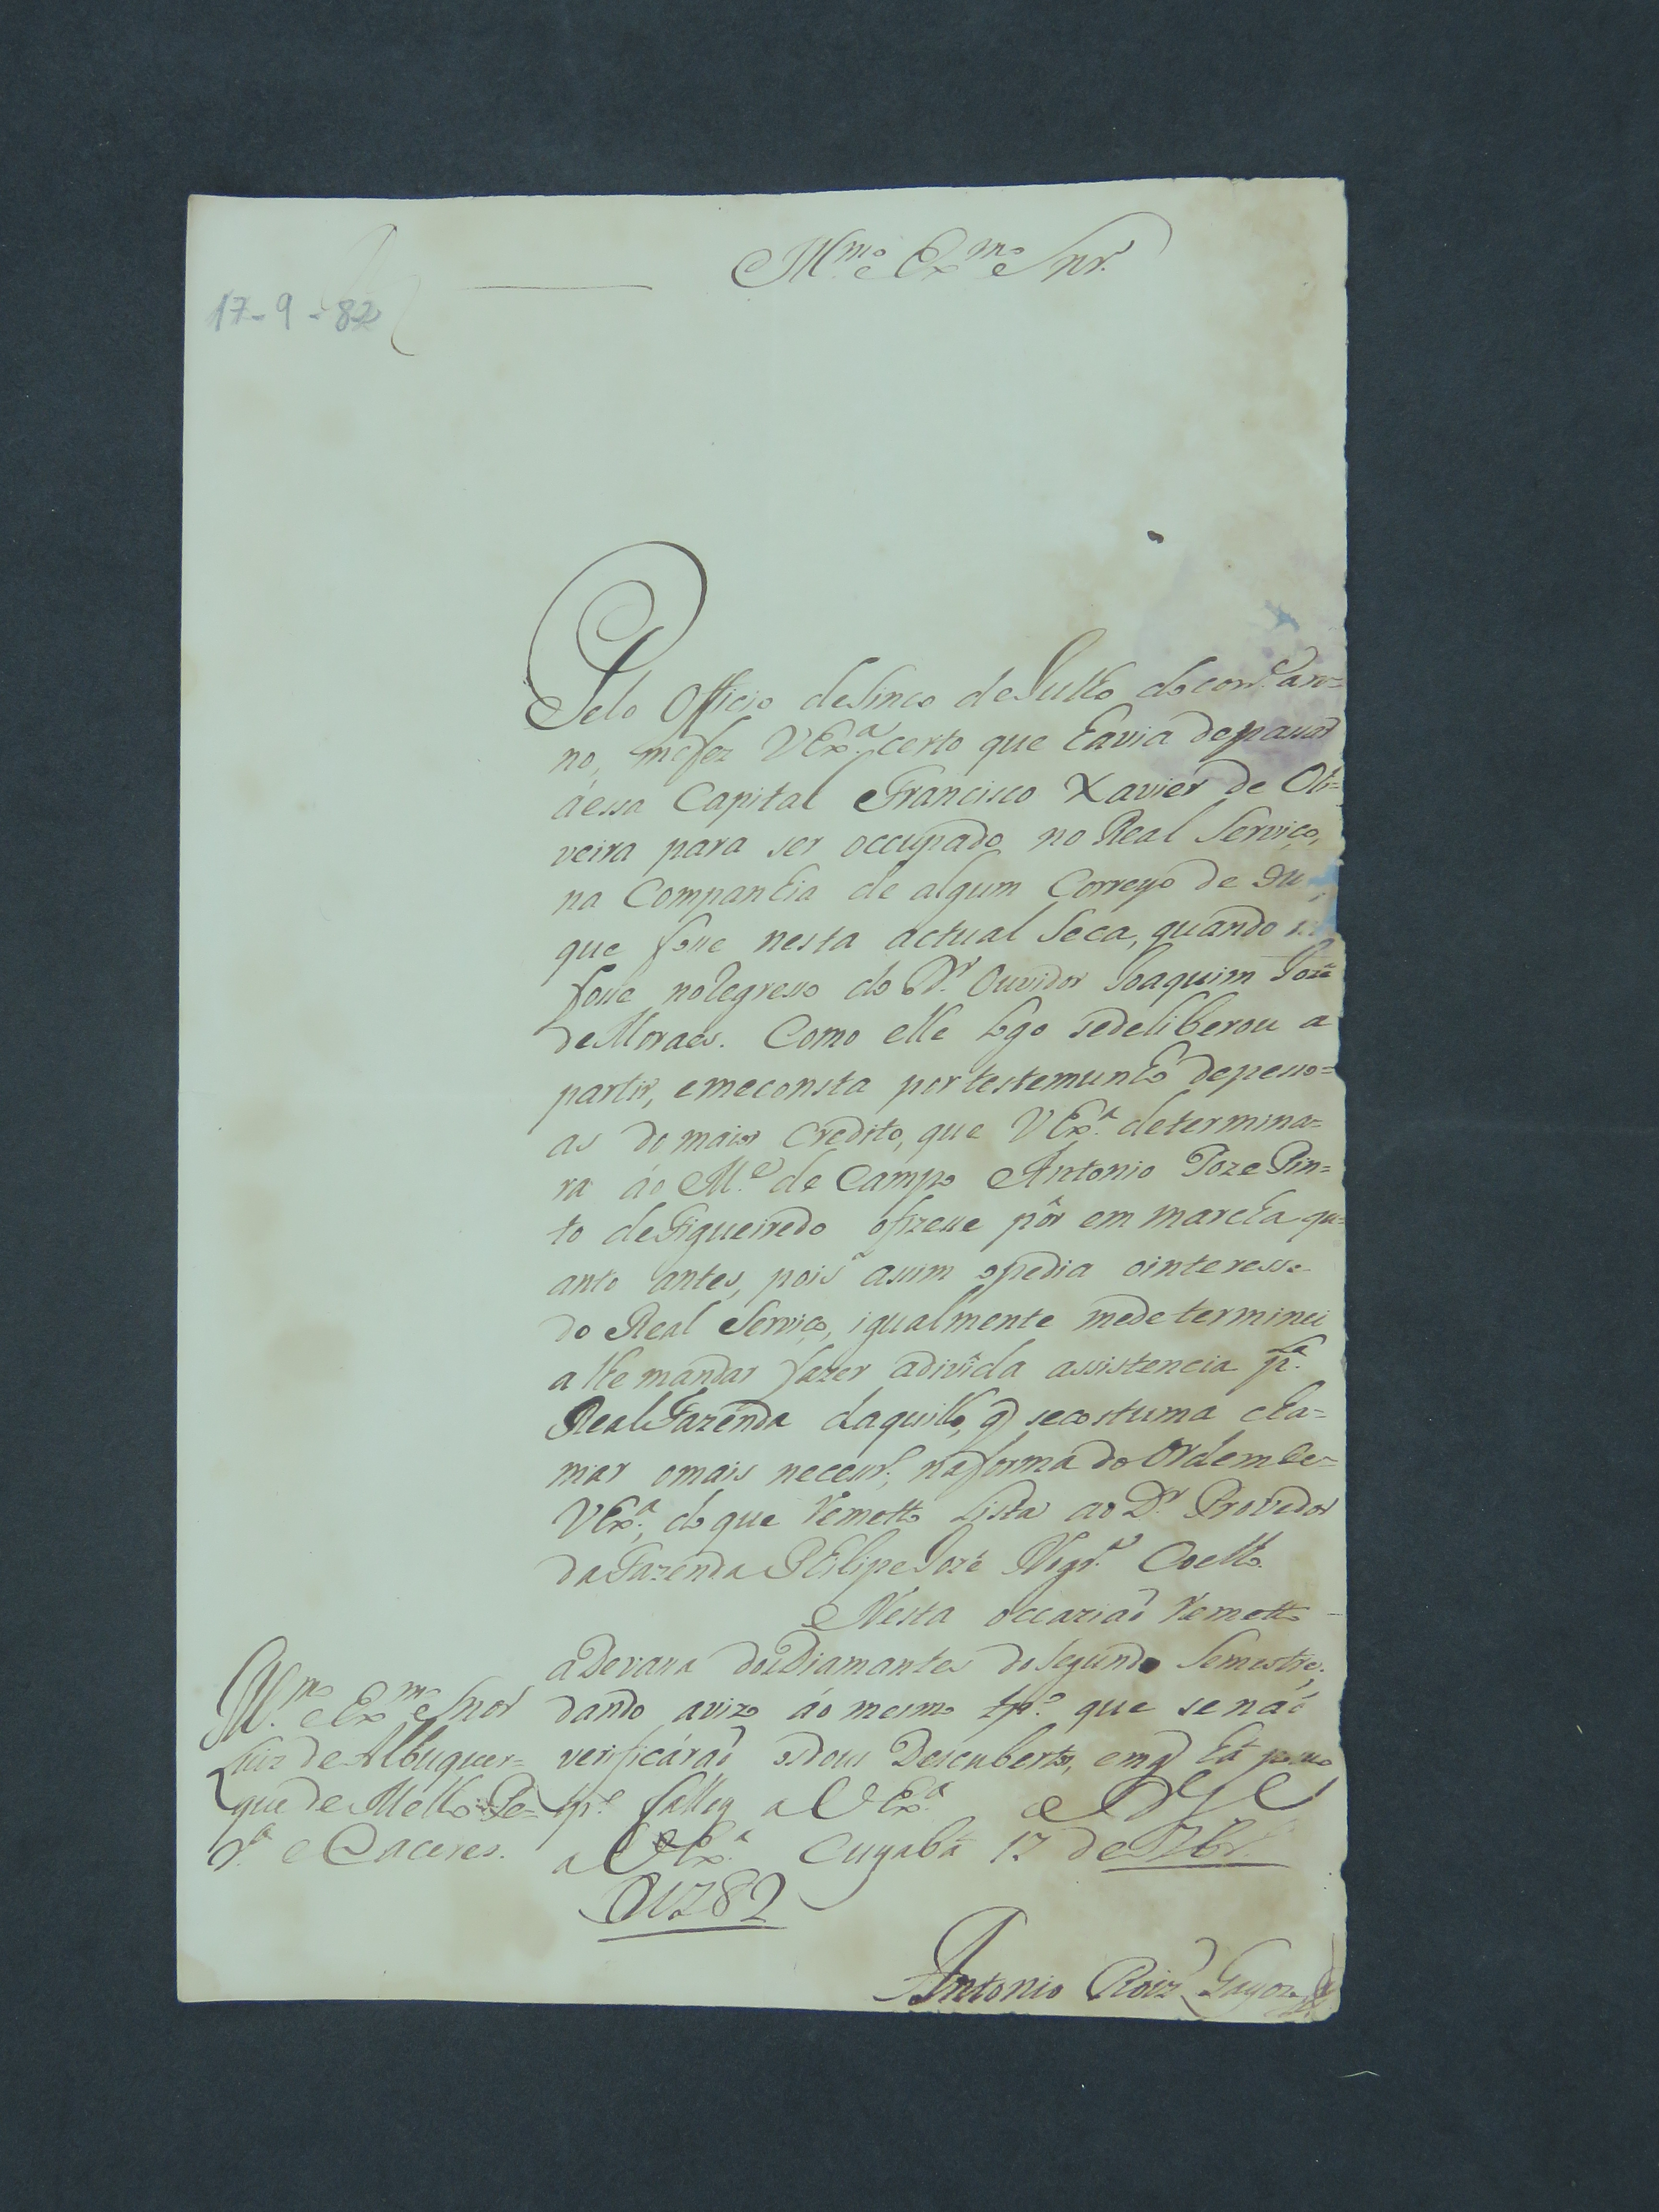 Ill.mo e Ex.mo Snr.
17-9-82
Pelo Officio desinco deJulho docorr.e an=
no, mefez VEx.ª certo que havia depassar
áessa Capital Francisco Xavier de Oli=
veira para ser occupado no Real Serviço,
na Companhia de algum Correyo de
que fosse nesta actual Seca, quando
fosse noRegresso do D.r Ouvidor Joaquim Jozé
deMoraes. Como elle logo sedeliberou a
partir, emeconsta portestemunho depesso=
as do maior Credito, que VEx.ª determina=
ra áo M.e de Campo Antonio Joze Pin=
to deFigueiredo ofizesse pôr em marcha qu=
anto antes, pois assim opedia ointeresse
do Real Serviço, igualmente medeterminei
a lhe mandar fazer adivida assistencia p.ª
Real Fazenda daquillo, q̃ secostuma cha=
mar omais necessr.º, naforma do Ordem de=
VEx.ª, do que Remetto Lista ao D.r Provedor
daFazenda Philipe Jozé Nogr.ª Coelho.
Nesta occaziaõ Remetto
aDevaça dosDiamantes doSegundo Semestre,
dando avizo áo mesmo tp.º que se naõ
verificáraõ osdous Descubertos, emq̃ há pouco
tp.º falley a VEx.ª DGe
a VEx.ª Cuyabá 17 de 7br.º
D1782
Ill.mo e Ex.mo Snor
Luiz deAlbuquer=
que de Mello Pe=
r.ª e Caceres.
Antonio Roiz Gayozo